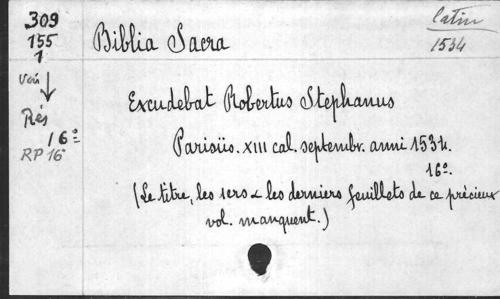 309
155
1
Voir
Rés
16º
RP 16
Latin
1534
Biblia Sacra
Excudebat Robertus Stephanus
Parisiis. XIII cal. septembr. anni 1534.
16º.
(Le titre, les 1ers & les derniers feuillets de ce précieux
vol. manquent.)